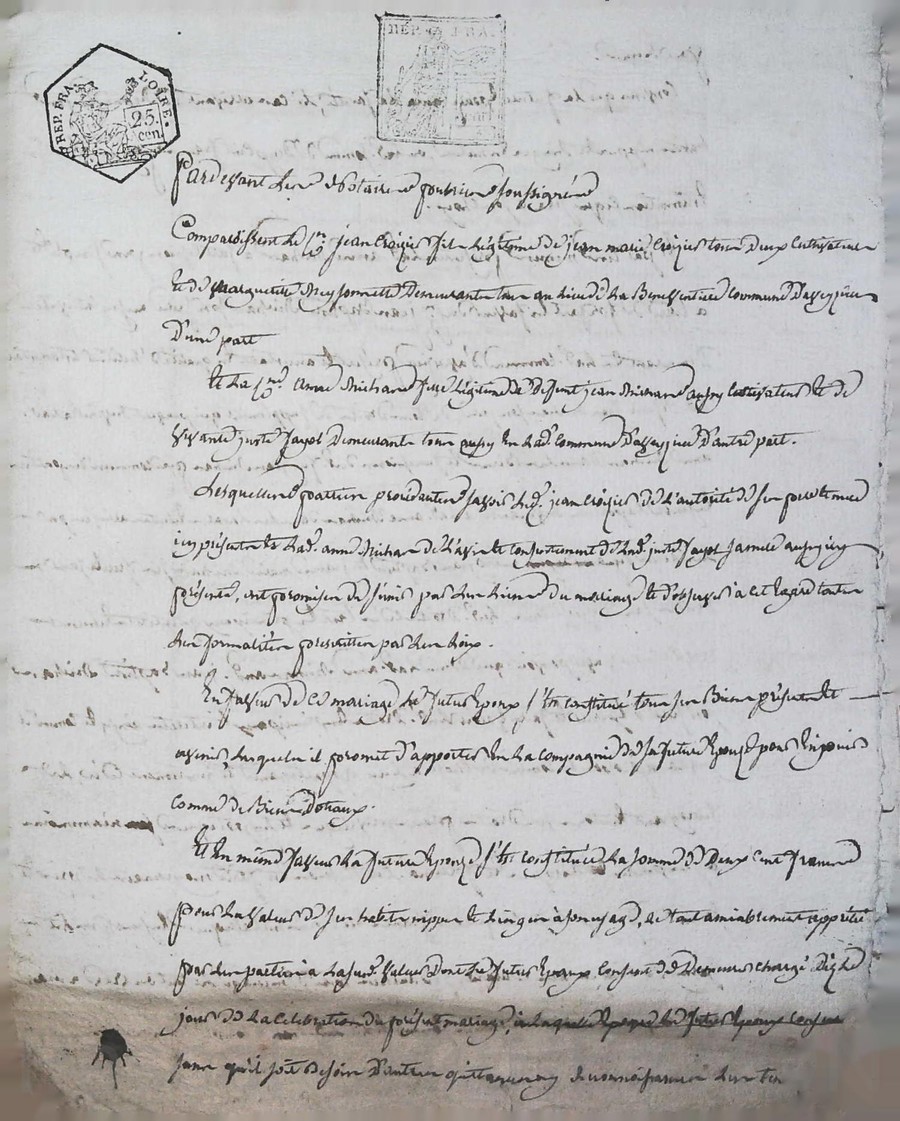 REP. FRA. LOIRE.
25. cen.
REP.
Pardevant les Notaires publics soussignés
Comparoissent le Sr. jean Croizier fils légitime de jean marie Croizier tous deux Cultivateurs
et de Marguerite demeurants tous au lieu de la Commune
D'une part
et la anne Michard fille légitime de deffunt jean Michard aussy Cultivateur et de
vivante juste Jayol Demeurants tous aussy en lad. Commune D'autre part.
Lesquelles parties procédantes savoir led. jean Croizier de l'autorité de son père
icy présent et lad. anne Michard de l'avis et Consentement de lad. juste Jayol sa mère aussy icy
présente, ont promis de s'unir par les liens du mariage et d'observer à cet égard toutes
les formalités prescrittes par les loix.
En faveur de ce mariage le futur Epoux s'est constitué tous ses Biens présents et
avenir, lesquels il promet d'apporter en la Compagnie de sa future Epouse pour en jouir
comme de Biens dotaux.
Et en même faveur la future Epouse s'est constituée la somme de Deux Cent francs
pour la valeur de ses habits nippes et linges à son usage, le tout amiablement apprécié
par les parties à la susd. valeur Dont le futur Epoux Consent de Demeurer chargé Dès le
jour de la célébration du présent mariage
sans qu'il soit Besoin D'autres quittances ny reconnoissances